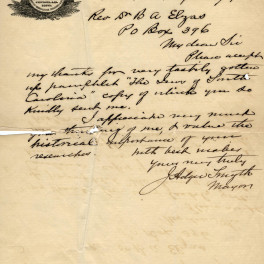 Rev Dr B A Elzas
PO Box 396
My dear Sir
Please accept
my thanks for very tastily gotten
up pamphlet "The Jews of South
Carolina" copy of which you so
kindly sent me.
I appreciate very much
your thinking of me, & value the
historical importance of your
researches.
With best wishes
Yours very truly
J Adger Smyth
Mayor